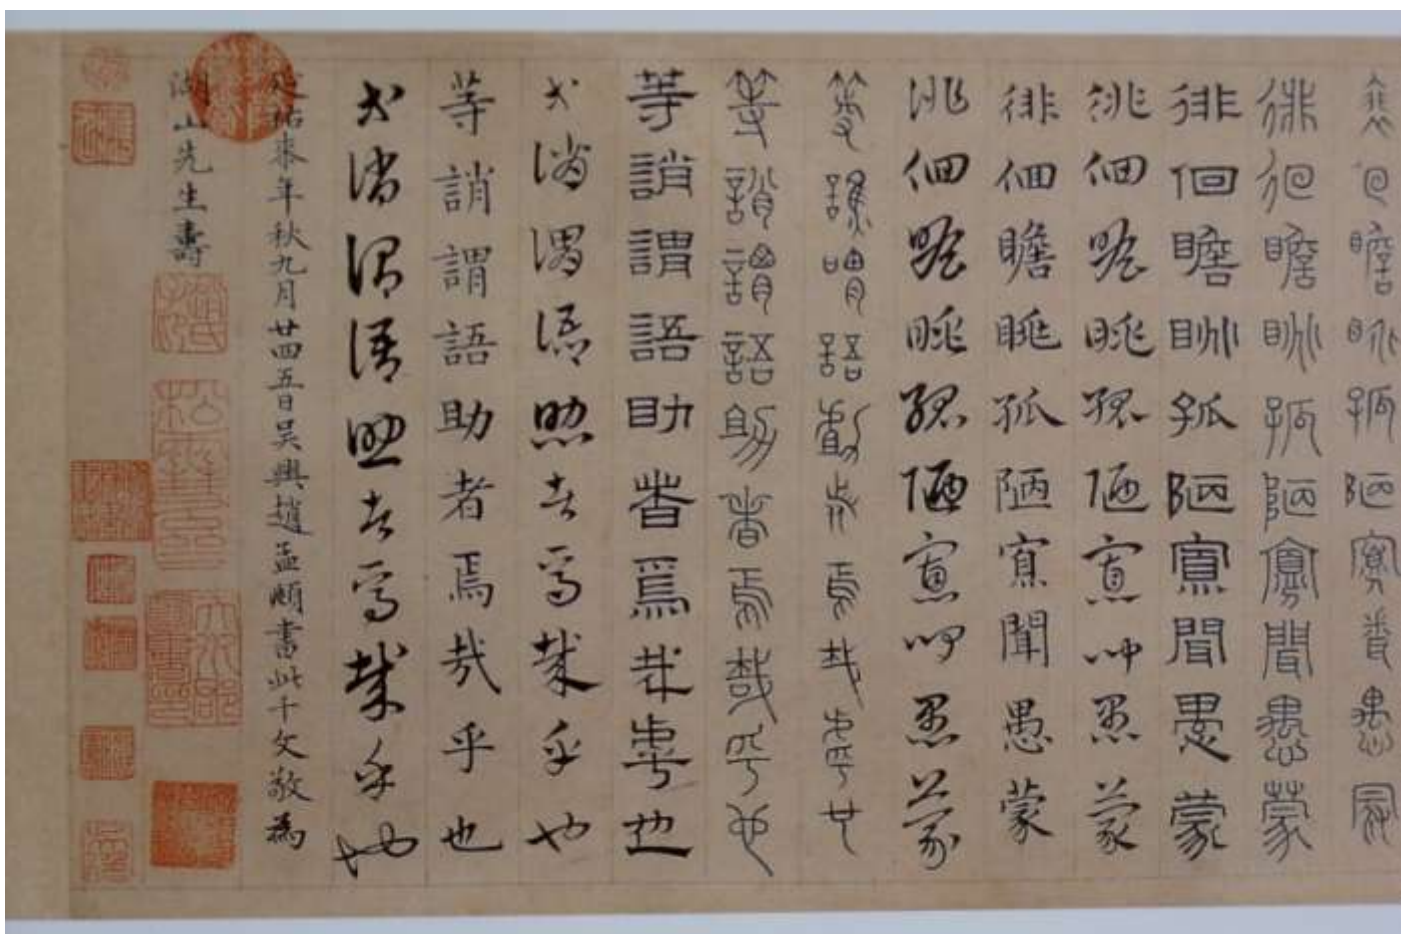 徘徊瞻眺孤陋寡聞愚蒙
徘徊瞻眺孤陋寡聞愚蒙
徘徊瞻眺孤陋寡聞愚蒙
徘徊瞻眺孤陋寡聞愚蒙
徘徊瞻眺孤陋寡聞愚蒙
徘徊瞻眺孤陋寡聞愚蒙
等誚謂語助者焉哉乎也
等誚謂語助者焉哉乎也
等誚謂語助者焉哉乎也
等誚謂語助者焉哉乎也
等誚謂語助者焉哉乎也
等誚謂語助者焉哉乎也
延祐柒年秋九月廿四五日吴興趙孟頫書此千文敬為
湖山先生壽